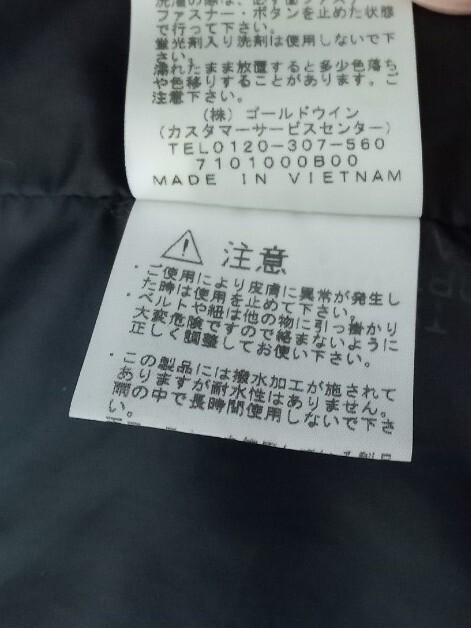 ファスナー・ボタンを止めた状態
で行って下さい。
蛍光剤入り洗剤は使用しないで下
さい。
濡れたまま放置すると多少色落ち
や色移りすることがあります。ご
注意下さい。
(株)ゴールドウイン
(カスタマーサービスセンター)
TEL0120-307-560
7101000B00
MADE IN VIETNAM
注意
・ご使用により皮膚に異常が発生し
た時は使用を止めて下さい。
・ベルトや紐は他の物に引っ掛かり
大変危険ですので絡まないように
正しく調整してお使い下さい。
・この製品には撥水加工が施されて
ありますが耐水性はありません。
雨の中で長時間使用しないで下さ
い。